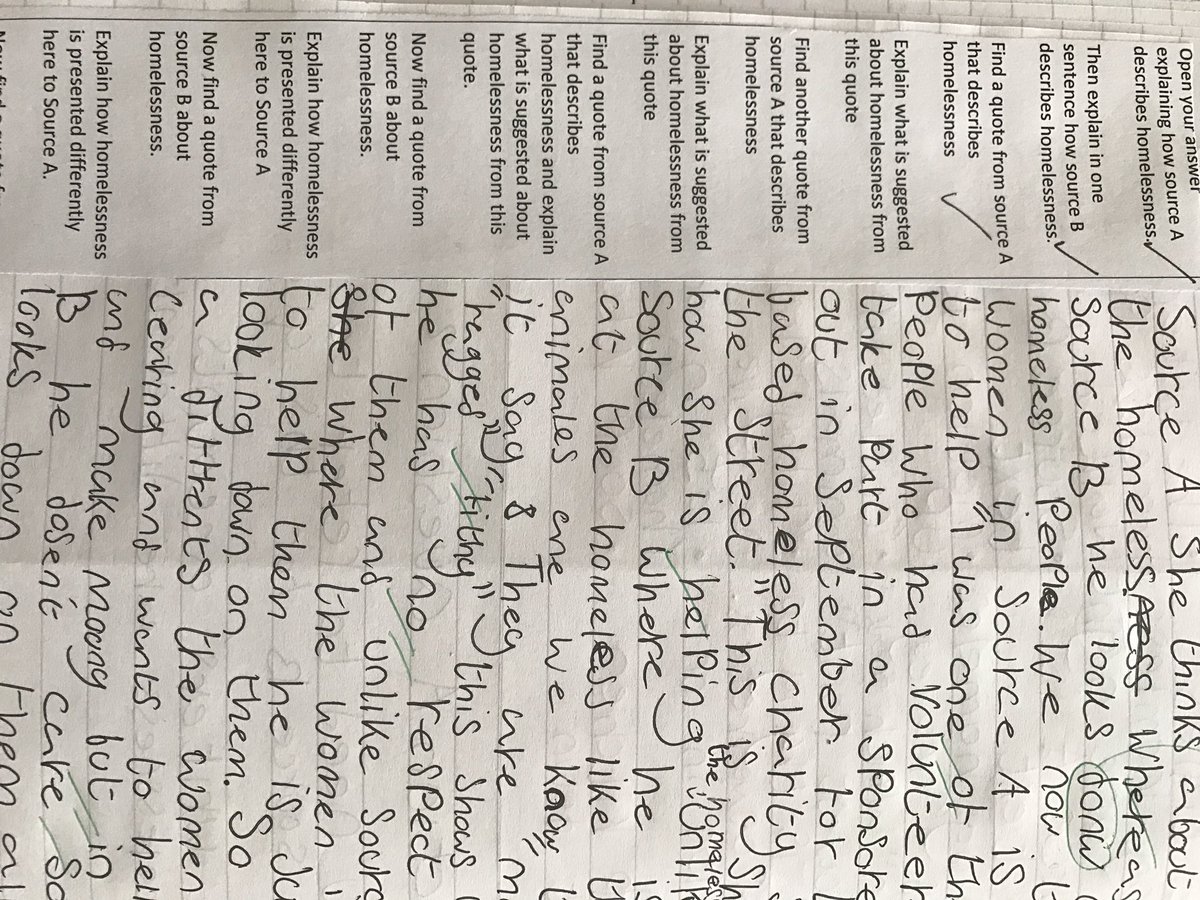 Open your answer
explaining how source A
describes homelessness.
Then explain in one
sentence how source B
describes homelessness.
Find a quote from source A
that describes
homelessness
Explain what is suggested
about homelessness from
this quote
Find another quote from
source A that describes
homelessness
Explain what is suggested
about homelessness from
this quote
Find a quote from source A
that describes
homelessness and explain
what is suggested about
homelessness from this
quote.
Now find a quote from
source B about
homelessness.
Explain how homelessness
is presented differently
here to Source A
Now find a quote from
source B about
homelessness.
Explain how homelessness
is presented differently
here to Source A.
Source A she thinks about
the homeless whereas
Source B he looks donw
homeless people. We now
women in Source A is
to help "I was one of th
People who had volunteer
take part in a sponsore
out in September for
based homeless charity
the street." This is sh
how she is helping the homeles unlik
Source B where he is
at the homeless like
animales and we know
it say & They are
"ragged, fithy" this shows
he has no respect
of them and unlike Sourc
She where the women
to help them he is
looking down on them. So
a diffrents the women
Cearing and wants to hel
and make moony but in
B he dosent care So
looks down on them